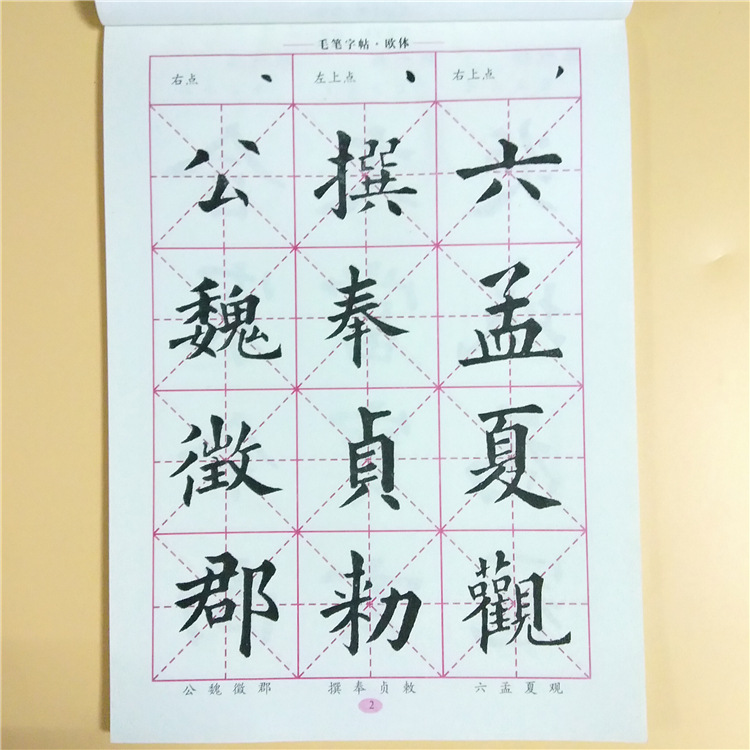 毛笔字帖·欧体
右点
左上点
右上点
公魏徵郡
撰奉貞勑
六孟夏觀
公魏徵郡
撰奉贞敕
六孟夏观
2